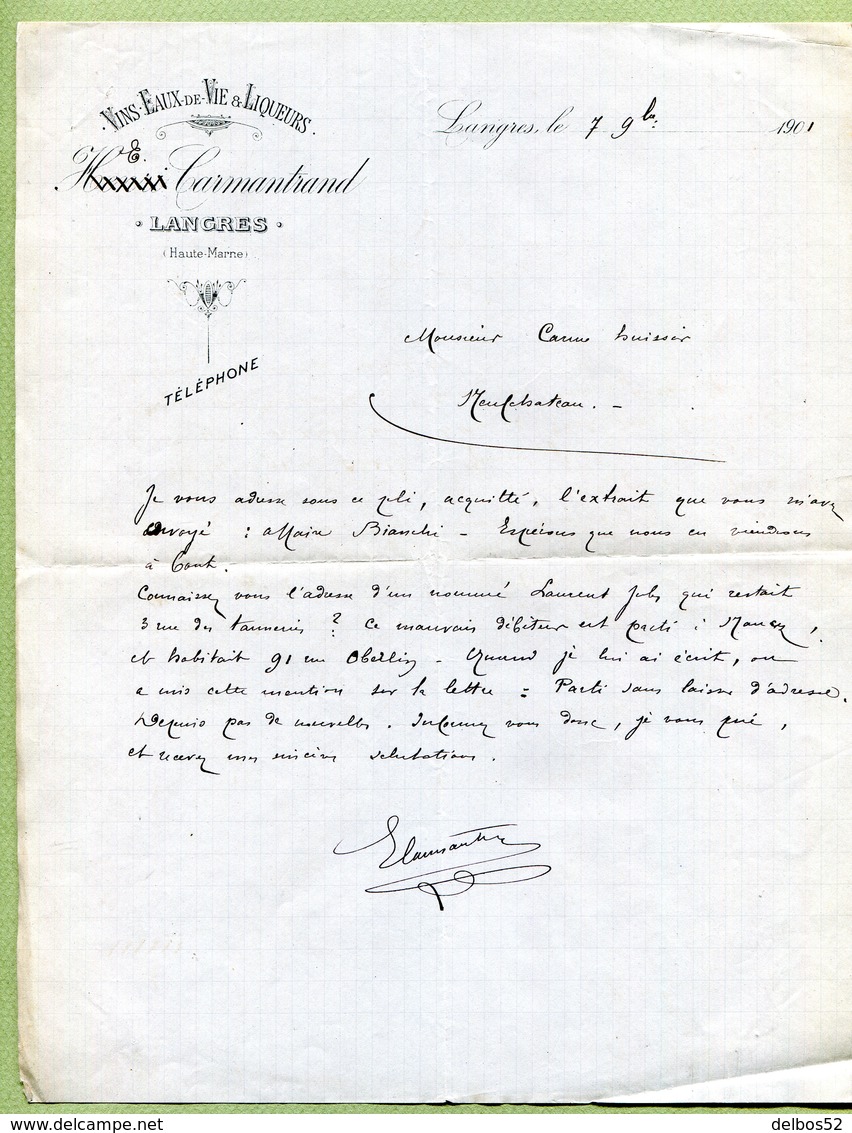 VINS·EAUX-DE-VIE & LIQUEURS.
E.
Carmantrand
LANGRES
(Haute-Marne)
TÉLÉPHONE
Langres, le 7 9bre 1901
Monsieur huissier
Neufchateau. -
Je vous adresse sous ce pli, acquitté, l'extrait que vous m'avez
envoyé : affaire Bianchi - Espérons que nous en viendrons
à bout.
Connaissez vous l'adresse d'un nommé Laurent Jules qui restait
3 rue des tanneries ? Ce mauvais débiteur est parti à Nancy,
et habitait 91 rue Oberlin - Quand je lui ai écrit, on
a mis cette mention sur la lettre : Parti sans laisser d'adresse.
Depuis pas de nouvelles. Informez vous donc, je vous prie,
et recevez mes sincères salutations.
ECarmantrand
delbos52